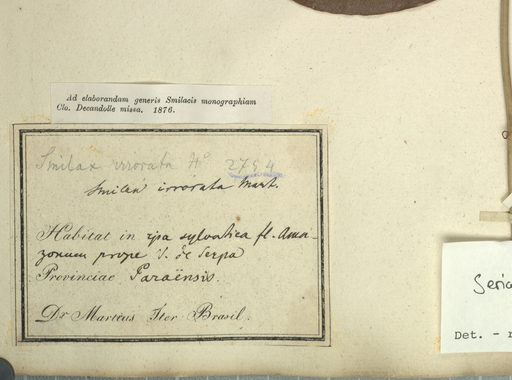 Ad elaborandam generis Smilacis monographiam
Clo. Decandolle missa. 1876.
Smilax irrorata
2754
Smilax irrorata Mart.
Habitat in ripa sylvatica fl. Ama-
zonum prope S. de Serpa
Provinciae Paraënsis.
Dr Martius Iter Brasil.
Det. -